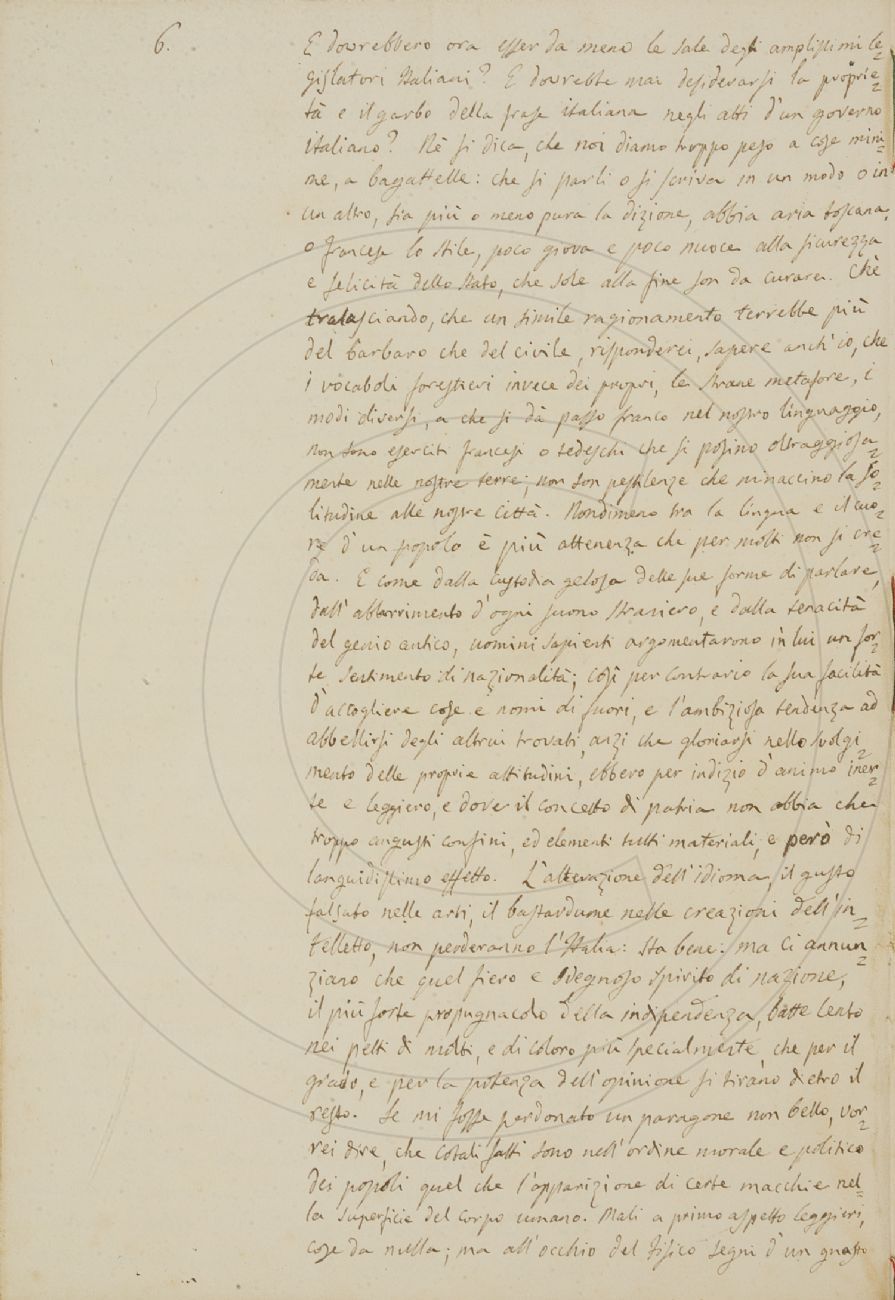 6.
E dovrebbero ora esser da meno le sale degli amplissimi le=
gislatori Italiani? E dovrebbe mai desiderarsi la proprie=
tà e il garbo della frase italiana negli atti d'un governo
italiano? Nè si dica, che noi diamo troppo peso a cose mini=
me, a bagattelle: che si parli o si scriva in un modo o in
un altro, sia più o meno pura la dizione, abbia aria toscana,
o francese lo stile, poco giova e poco nuoce alla sicurezza
e felicità dello Stato, che sole alla fine son da curare. Chè
tralasciando, che un simile ragionamento terrebbe più
del barbaro che del civile, risponderei, sapere anch'io, che
i vocaboli forestieri invece dei propri, le strane metafore, i
modi diversi, a che si dà passo franco nel nostro linguaggio,
non sono eserciti francesi o tedeschi che si posino oltraggiosa=
mente nelle nostre terre; non son pestilenze che minaccino la so=
litudine alle nostre città. Nondimeno tra la lingua e il cuo=
re d'un popolo è più attenenza che per molti non si cre=
da. E come dalla custodia gelosa delle sue forme di parlare,
dall'abborrimento d'ogni suono straniero, e dalla tenacità
del genio antico, uomini sapienti argomentarono in lui un for=
te sentimento di nazionalità; così per contrario la sua facilità
d'accogliere cose e nomi di fuori, e l'ambiziosa tendenza ad
abbellirsi degli altrui trovati, anzi che gloriarsi nello svolgi=
mento delle proprie attitudini, ebbero per indizio d'animo iner=
te e leggiero, e dover il concetto di patria non abbia che
troppo angusti confini, ed elementi tutti materiali, e però di
languidissimo effetto. L'alterazione dell'idioma, il gusto
falsato nelle arti, il bastardume nelle creazioni dell'in=
telletto, non perderanno l'Italia: sta bene: ma ci annun=
ziano che quel fiero e sdegnoso spirito di nazione,
il più forte propugnacolo della indipendenza, batte lento
nei petti di molti, e di coloro più specialmente, che per il
grado, e per la potenza dell'opinione si tirano dietro il
resto. Se mi fosse perdonato un paragone non bello, vor=
rei dire, che cotali fatti sono nell'ordine morale e politico
dei popoli quel che l'apparizione di certe macchie nel=
la superficie del corpo umano. Mali a primo aspetto leggieri,
cose da nulla; ma all'occhio del fisico segni d'un guasto